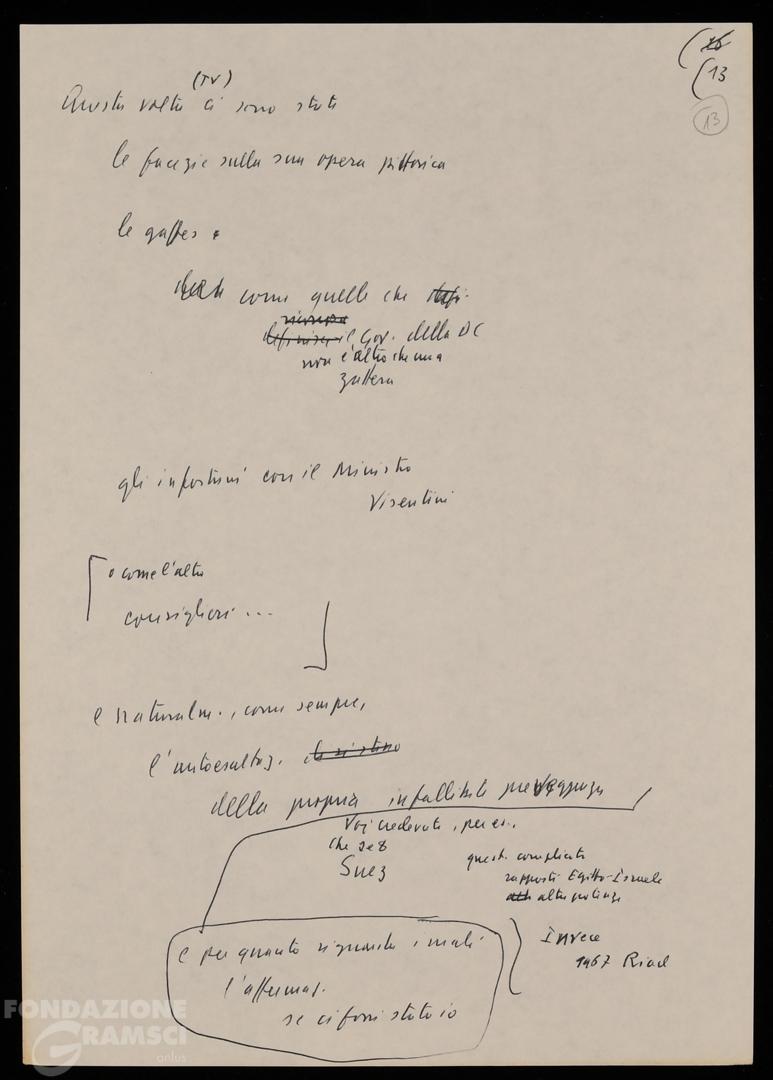 (16
(13
13
(TV)
Questa volta ci sono state
le facezie sulla sua opera pittorica
le gaffes e
come quelle che
il Gov. della DC
non è altro che una
zattera
gli infortuni con il Ministro
Visentini
o come l'altro
consiglieri ...
e naturalm., come sempre,
l'autoesaltaz.
della propria infallibile preveggenza
Voi credevate, per es.,
che se
Suez
questi complicati
rapporti Egitto-Israele
altre potenze
Invece
1967 Riad
e per quanto riguarda i mali
l'affermaz.
se ci fossi stato io
FONDAZIONE
GRAMSCI
onlus